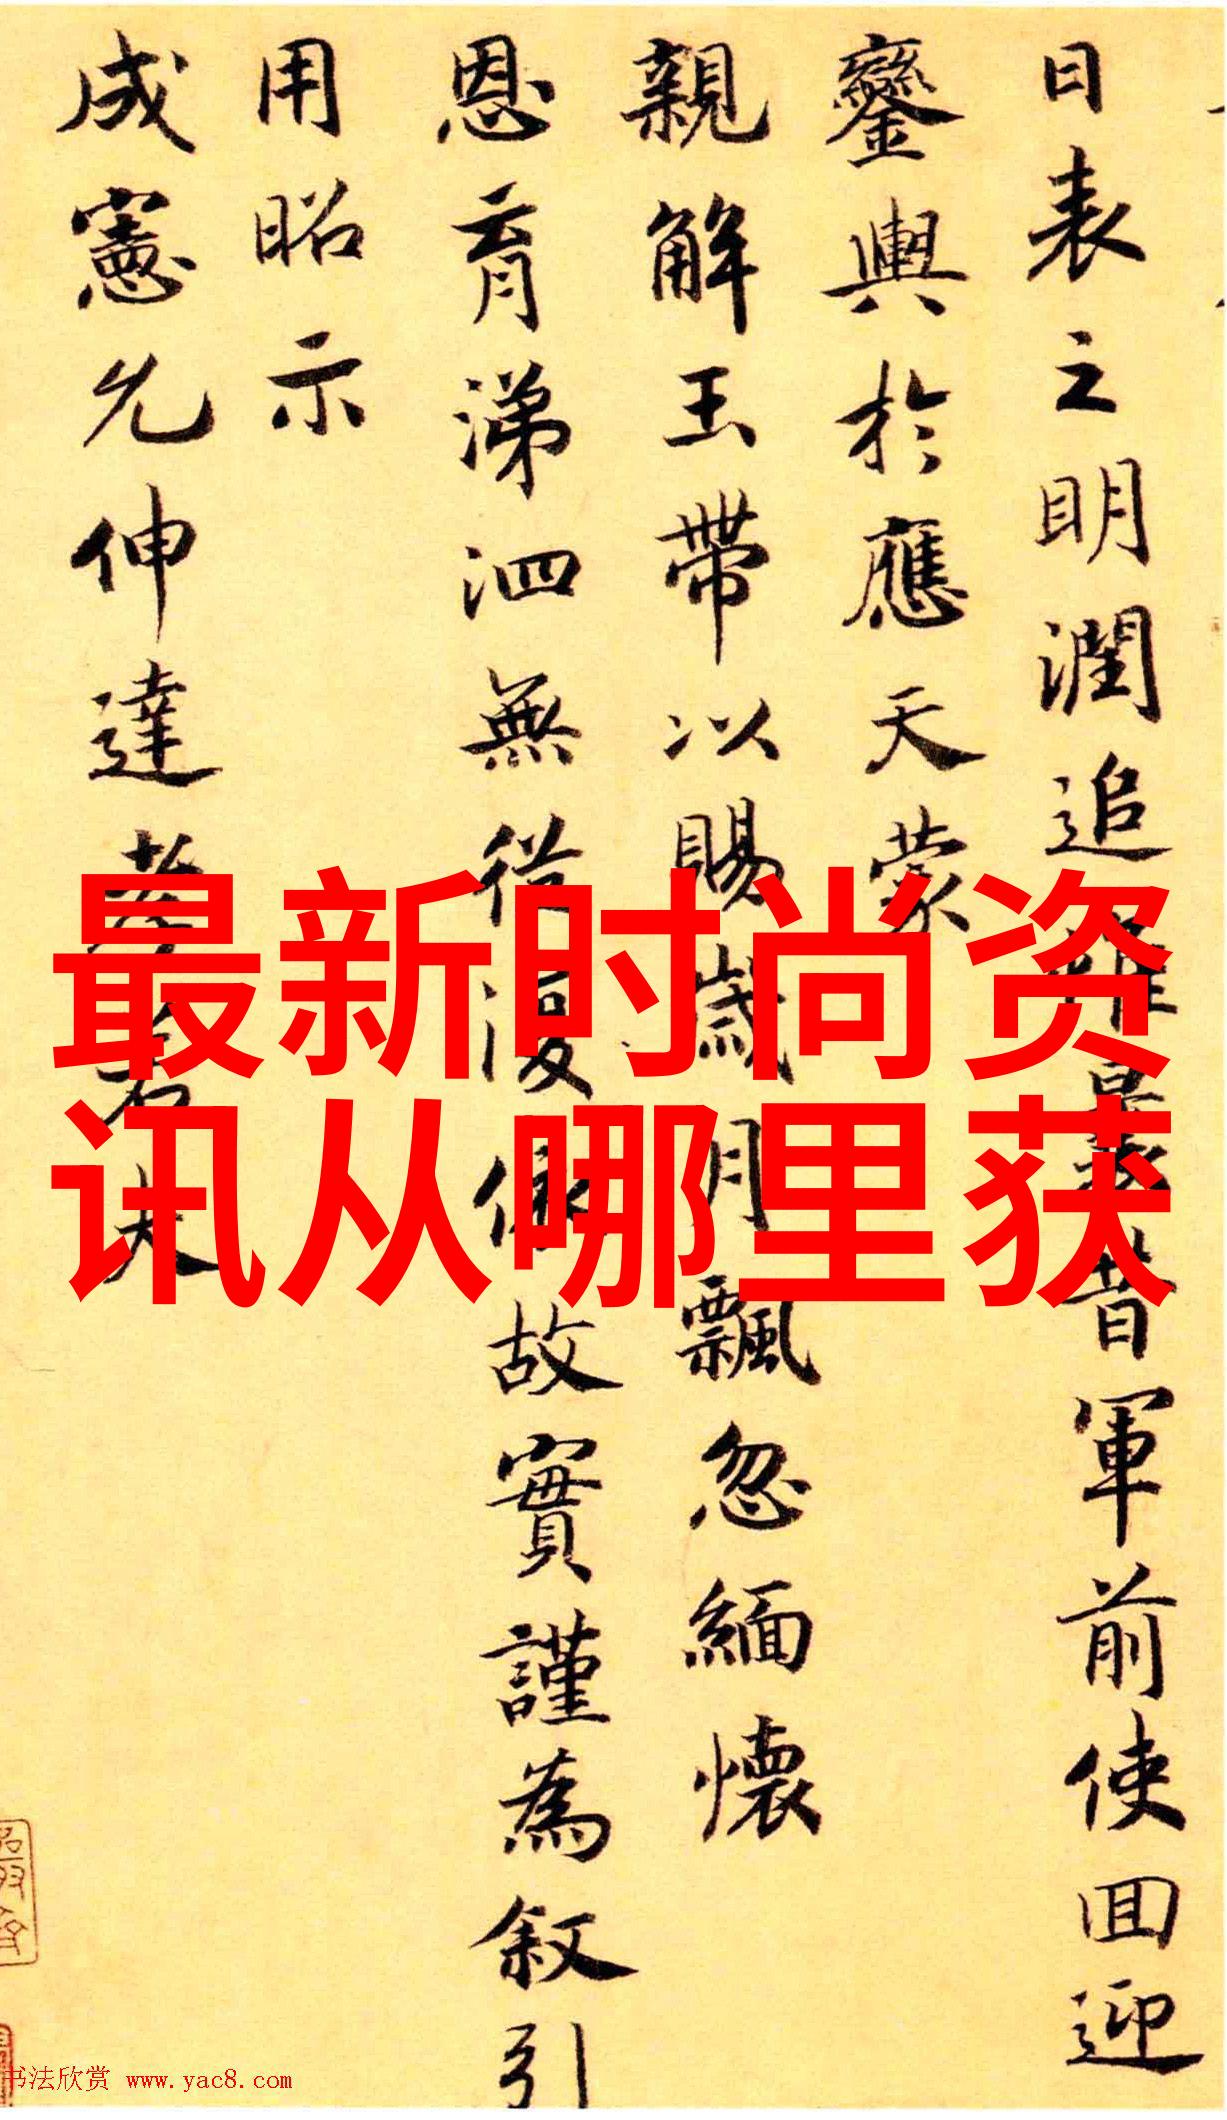 日表之明潤追惟曩昔軍前使回迎
鑾輿於應天蒙
親解玉帶以賜歲月飄忽緬懷
恩育涕泗無從復傷故實謹為叙引
用昭示
成憲允伸達孝若夫
最新时尚资
讯从哪里获
书法欣赏 www.yac8.com